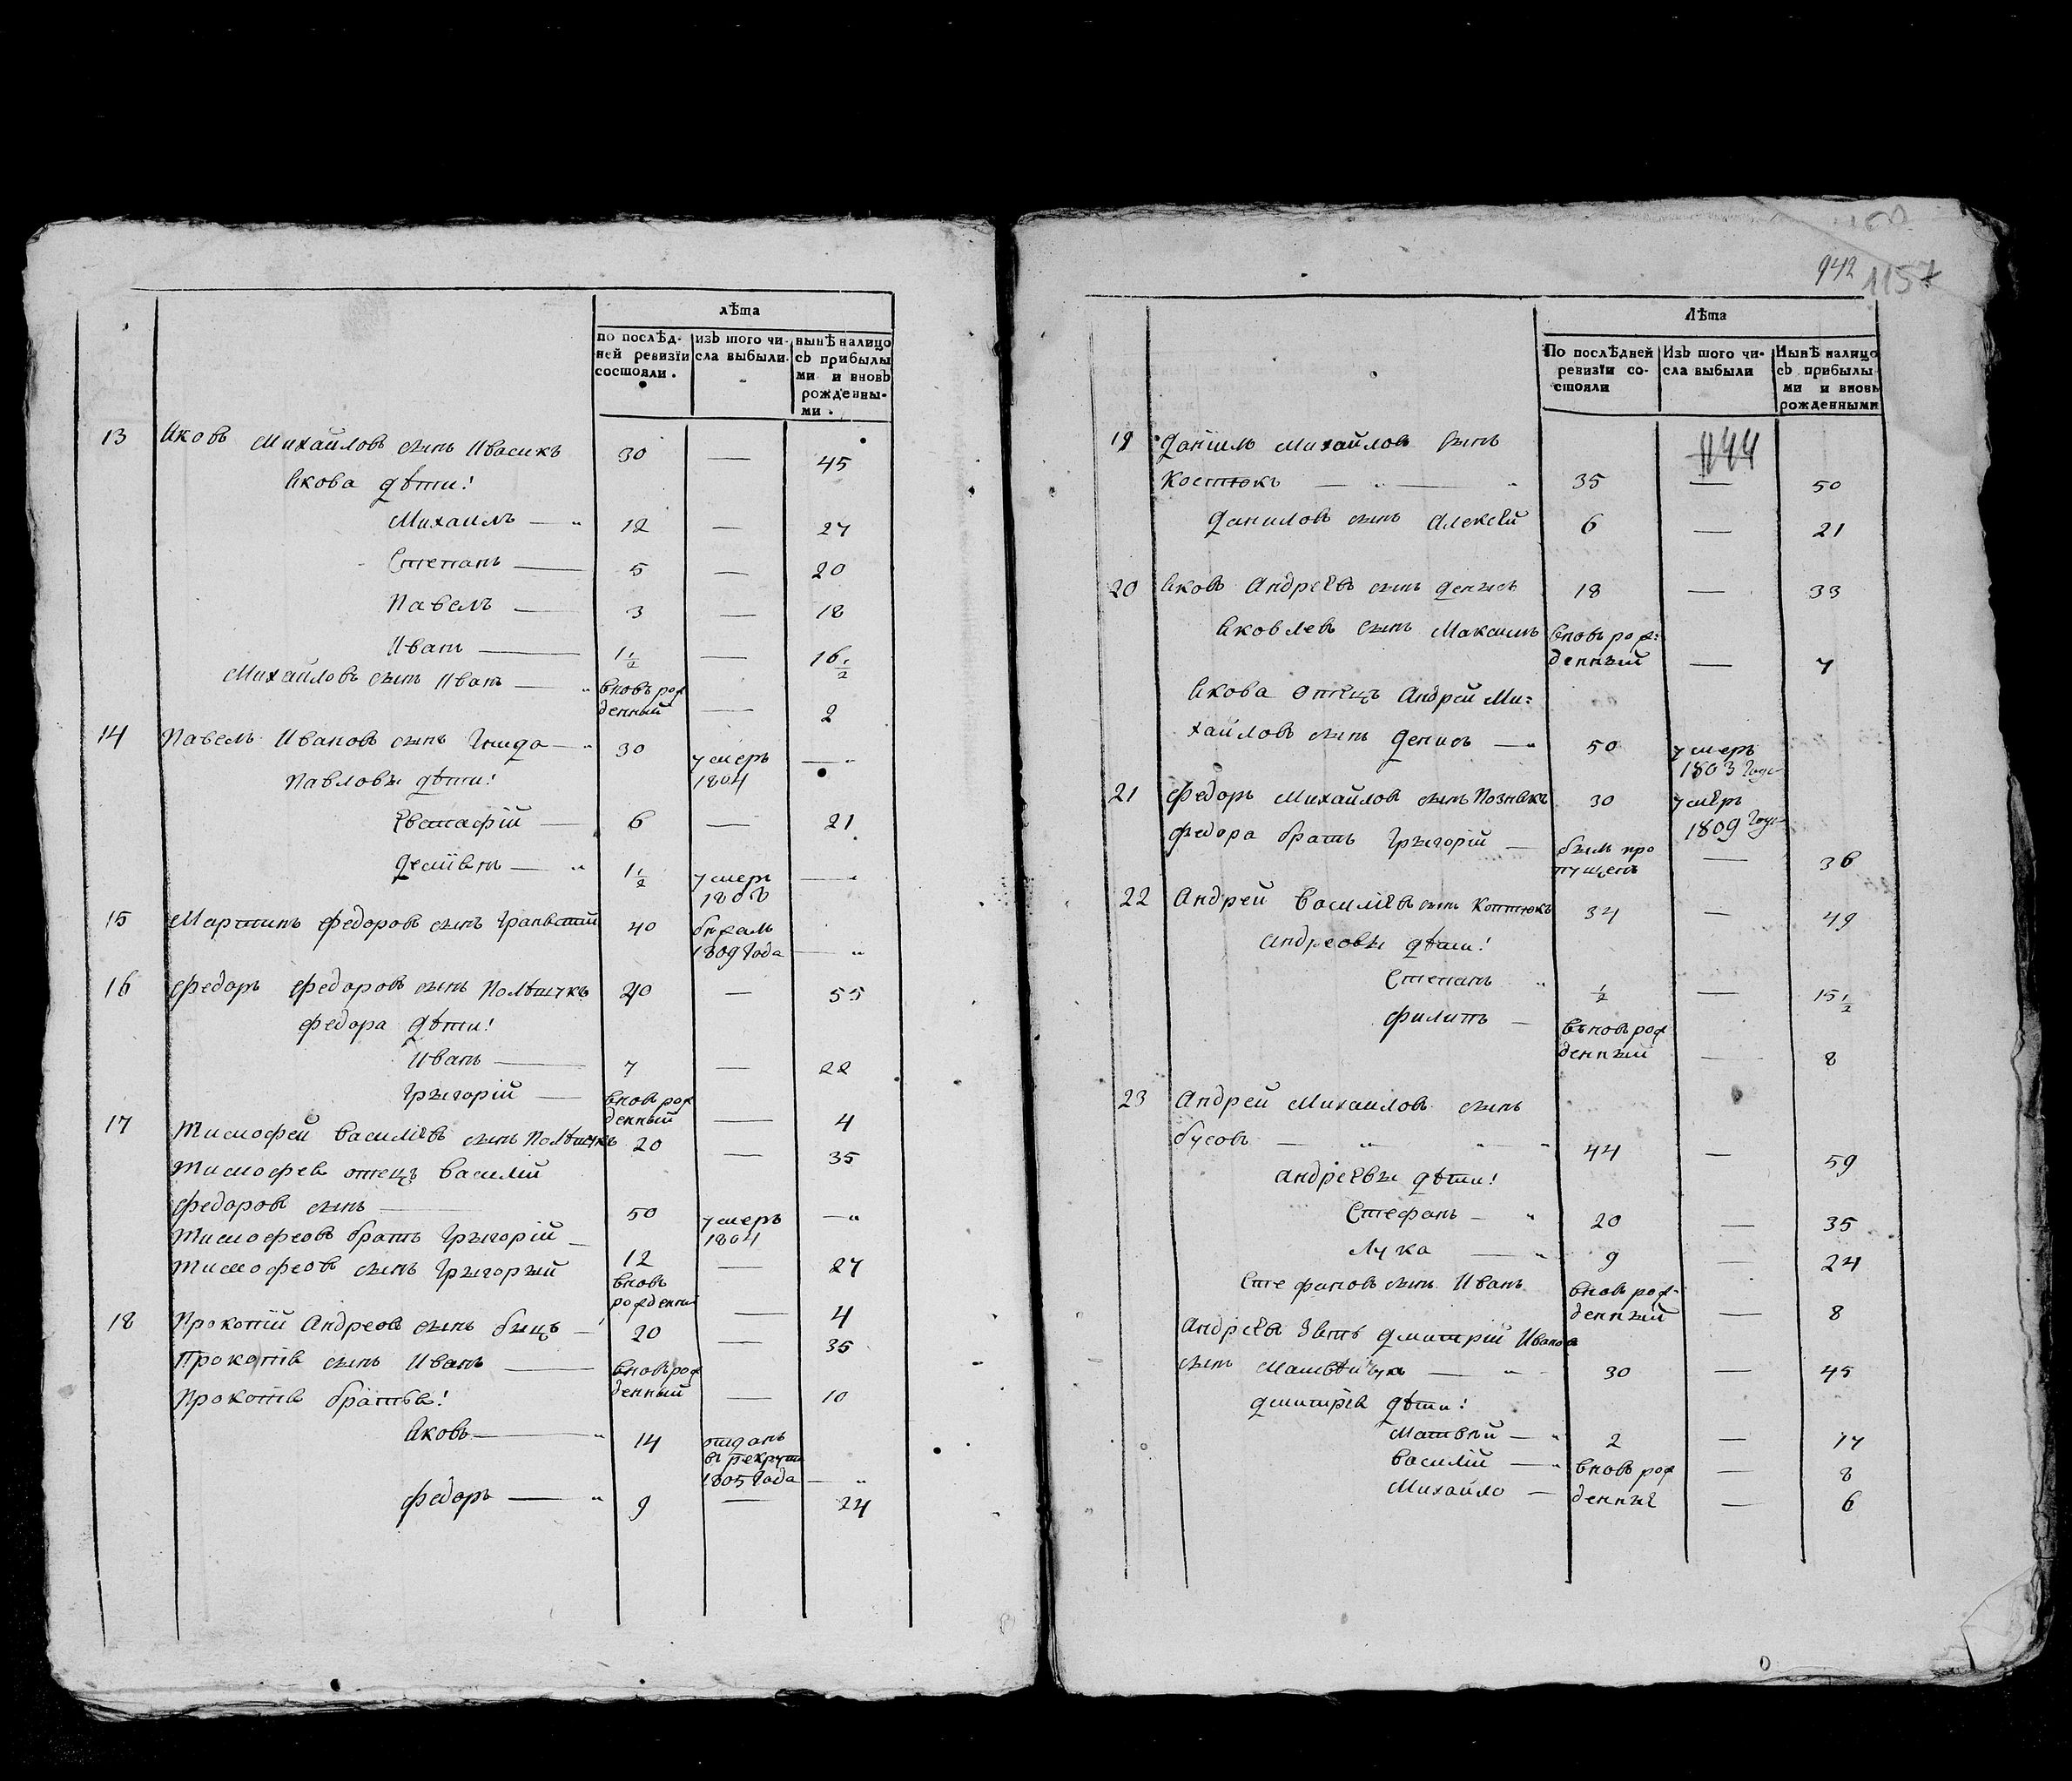 лѣта
по послѣд-
ней ревизіи
состояли.
изъ того чи-
сла выбыли.
нынѣ налицо
съ прибылы
ми и вновь
рожденны-
ми.
13 Яковъ Михайловъ сынъ Ивасикъ 30 — 45
Якова дѣти:
Михаилъ — 12 — 27
Степанъ — 5 — 20
Павелъ — 3 — 18
Иванъ — 1 1/2 — 16 1/2
Михайловъ сынъ Иванъ — вновь рож
денный — 2
14 Павелъ Ивановъ сынъ 30 умеръ —
1804
Павловы дѣти:
Евстафій — 6 — 21
Деміянъ — 1 1/2 умеръ —
1808
15 Мартинъ Федоровъ сынъ 40 бѣжалъ
1809 года —
16 Федоръ Федоровъ сынъ Полѣщукъ 40 — 55
Федора дѣти:
Иванъ — 7 — 22
Грыгорій — вновь рож
денный — 4
17 Тимофей Василіевъ сынъ Полѣщукъ 20 — 35
Тимофея отецъ Василій
Федоровъ сынъ — 50 умеръ —
1804
Тимофеовъ братъ Грыгорій — 12 — 27
Тимофеовъ сынъ Грыгорый вновь
рожденный — 4
18 Прокопій Андреовъ сынъ Быцъ — 20 — 35
Прокопія сынъ Иванъ — вновь рож
денный — 10
Прокопія братья:
Яковъ — 14 отданъ
въ рекруты
1805 года —
Федоръ — 9 — 24
942 1157
Лѣта
По послѣдней
ревизіи со-
стояли
Изъ того чи-
сла выбыли
Нынѣ налицо
съ прибылы
ми и вновь
рожденными
944
19 Даніилъ Михайловъ сынъ
Костюкъ — 35 — 50
Даниловъ сынъ Алексѣй 6 — 21
20 Яковъ Андреевъ сынъ Денысъ 18 — 33
Яковлевъ сынъ Максимъ вновь рож:
денный — 7
Якова отецъ Андрей Ми:
хайловъ сынъ Денысъ — 50 умеръ
1803 года
21 Федоръ Михайловъ сынъ Познякъ 30 умеръ
1809 года
Федора братъ Грыгорій — былъ про
пущенъ — 36
22 Андрей Василіевъ сынъ Коптюкъ 34 — 49
Андреовы дѣти:
Степанъ 1/2 — 15 1/2
Филипъ — въновь рож
денный — 8
23 Андрей Михаиловъ сынъ
Бусовъ — 44 — 59
Андреевы дѣти:
Стефанъ — 20 — 35
Лука — 9 — 24
Стефановъ сынъ Иванъ вновь рож-
денный — 8
Андреевъ зять Дмитрій Ивановъ
сынъ Матвѣйчукъ — 30 — 45
Дмитрія дѣти:
Матвѣй — 2 — 17
Василій — вновь рож — 8
Михайло — денные — 6